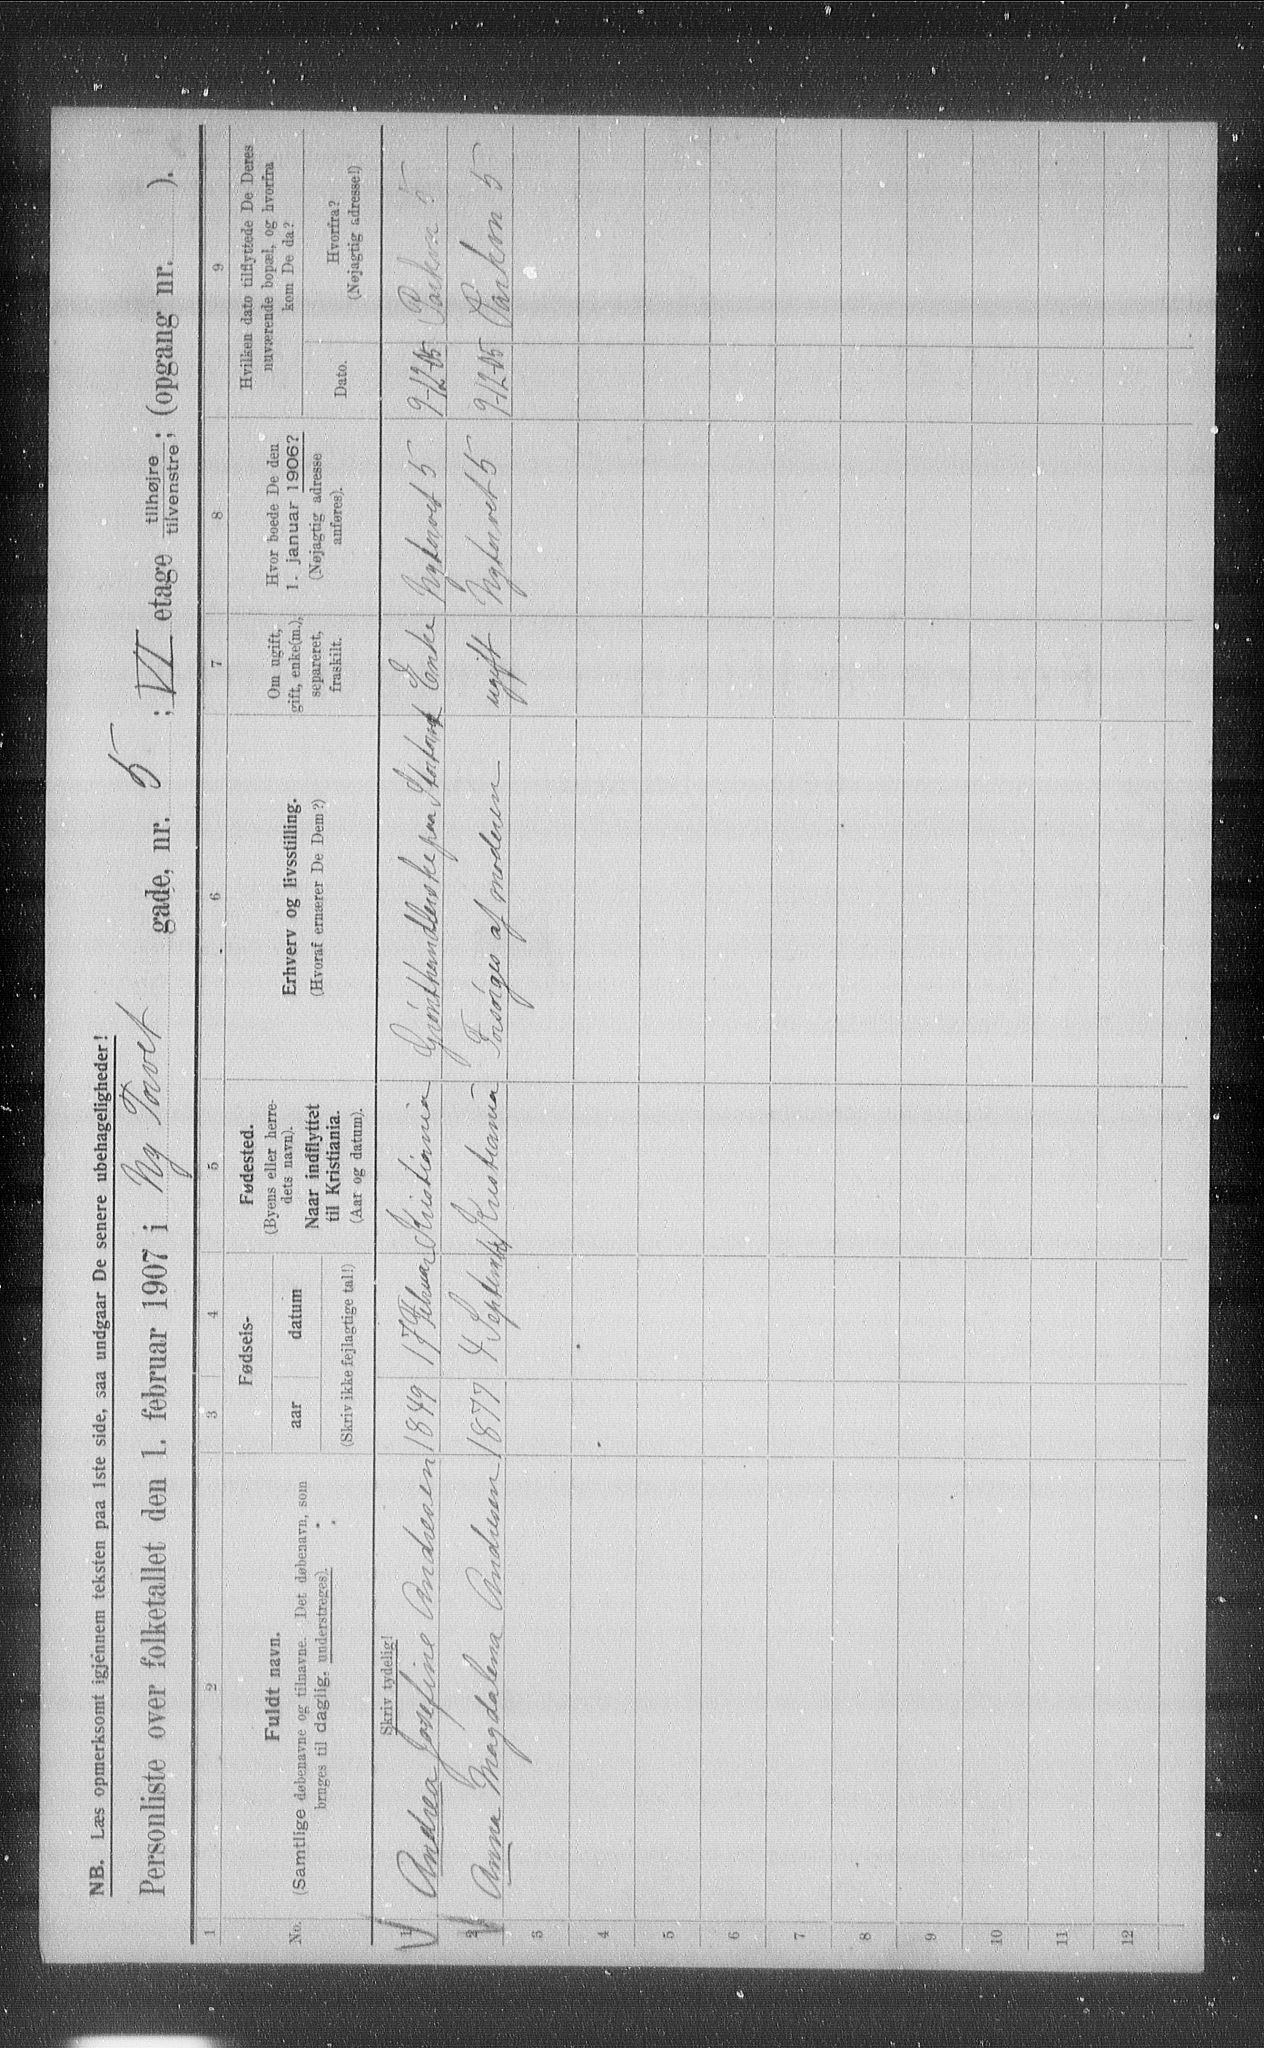 NB. Læs opmerksomt igjénnem teksten paa 1ste side, saa undgaar De senere ubehageligheder!
Personliste over folketallet den 1. februar 1907 i Ny Torvet gade, nr. 5 ; VI etage tilhøjre / tilvenstre ; (opgang nr. ).
1 2 3 4 5 6 7 8 9
No.
Fuldt navn.
(Samtlige døbenavne og tilnavne. Det døbenavn, som
bruges til daglig, understreges).
Fødsels-
aar datum
(Skriv ikke fejlagtige tal!)
Fødested.
(Byens eller herre-
dets navn).
Naar indflyttet
til Kristiania.
(Aar og datum).
Erhverv og livsstilling.
(Hvoraf ernærer De Dem?)
Om ugift,
gift, enke(m.),
separeret,
fraskilt.
Hvor boede De den
1. januar 1906?
(Nøjagtig adresse
anføres).
Hvilken dato tilflyttede De Deres
nuværende bopæl, og hvorfra
kom De da?
Dato.
Hvorfra?
(Nøjagtig adresse!)
Skriv tydelig!
1 Andrea Josefine Andresen 1849 17 Februar Kristiania Grønthandlerske paa Enke Nytorvet 5 9-12-05 5
2 Anna Magdalena Andresen 1877 4 September Kristiania Forsørges af moderen ugift Nytorvet 5 9-12-05 5
3
4
5
6
7
8
9
10
11
12